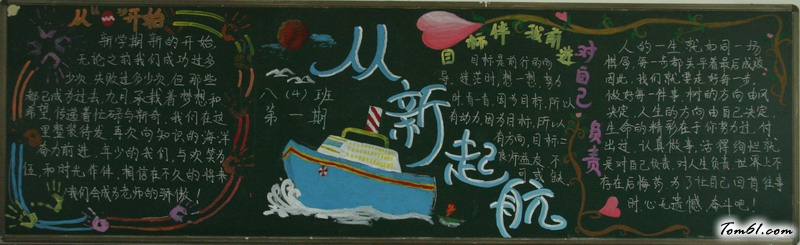 从“心”开始
新学期新的开始,
无论之前我们成功过多
少次,失败过多少次,但那些
都已成为过去,九月承载着梦想和
希望,传递着忙碌与新奇,我们在这
里整装待发,再次向知识的海洋
奋力前进,年少的我们,与欢笑为
伍,和时光作伴,相信在不久的将来
我们会成为老师的骄傲!
八(4)班
第一期
从新起航
目标伴我前进
目标是前行的向
导,迷茫时,想一想,努力
时,看一看,因为目标,所以
有动力,因为目标,所以
有方向,目标
不
可或缺。
对自己负责
人的一生就如同一场
棋局,每一步都关乎着最后成败,
因此,我们就要走好每一步,
做好每一件事,树的方向由风
决定,人生的方向由自己决定,
生命的精彩在于你努力过,付
出过,认真做事,活得绚烂就
是对自己负责,对人生负责,世界上不
存在后悔药,为了让自己回首往事
时,心无遗憾,奋斗吧!
Tom61.com